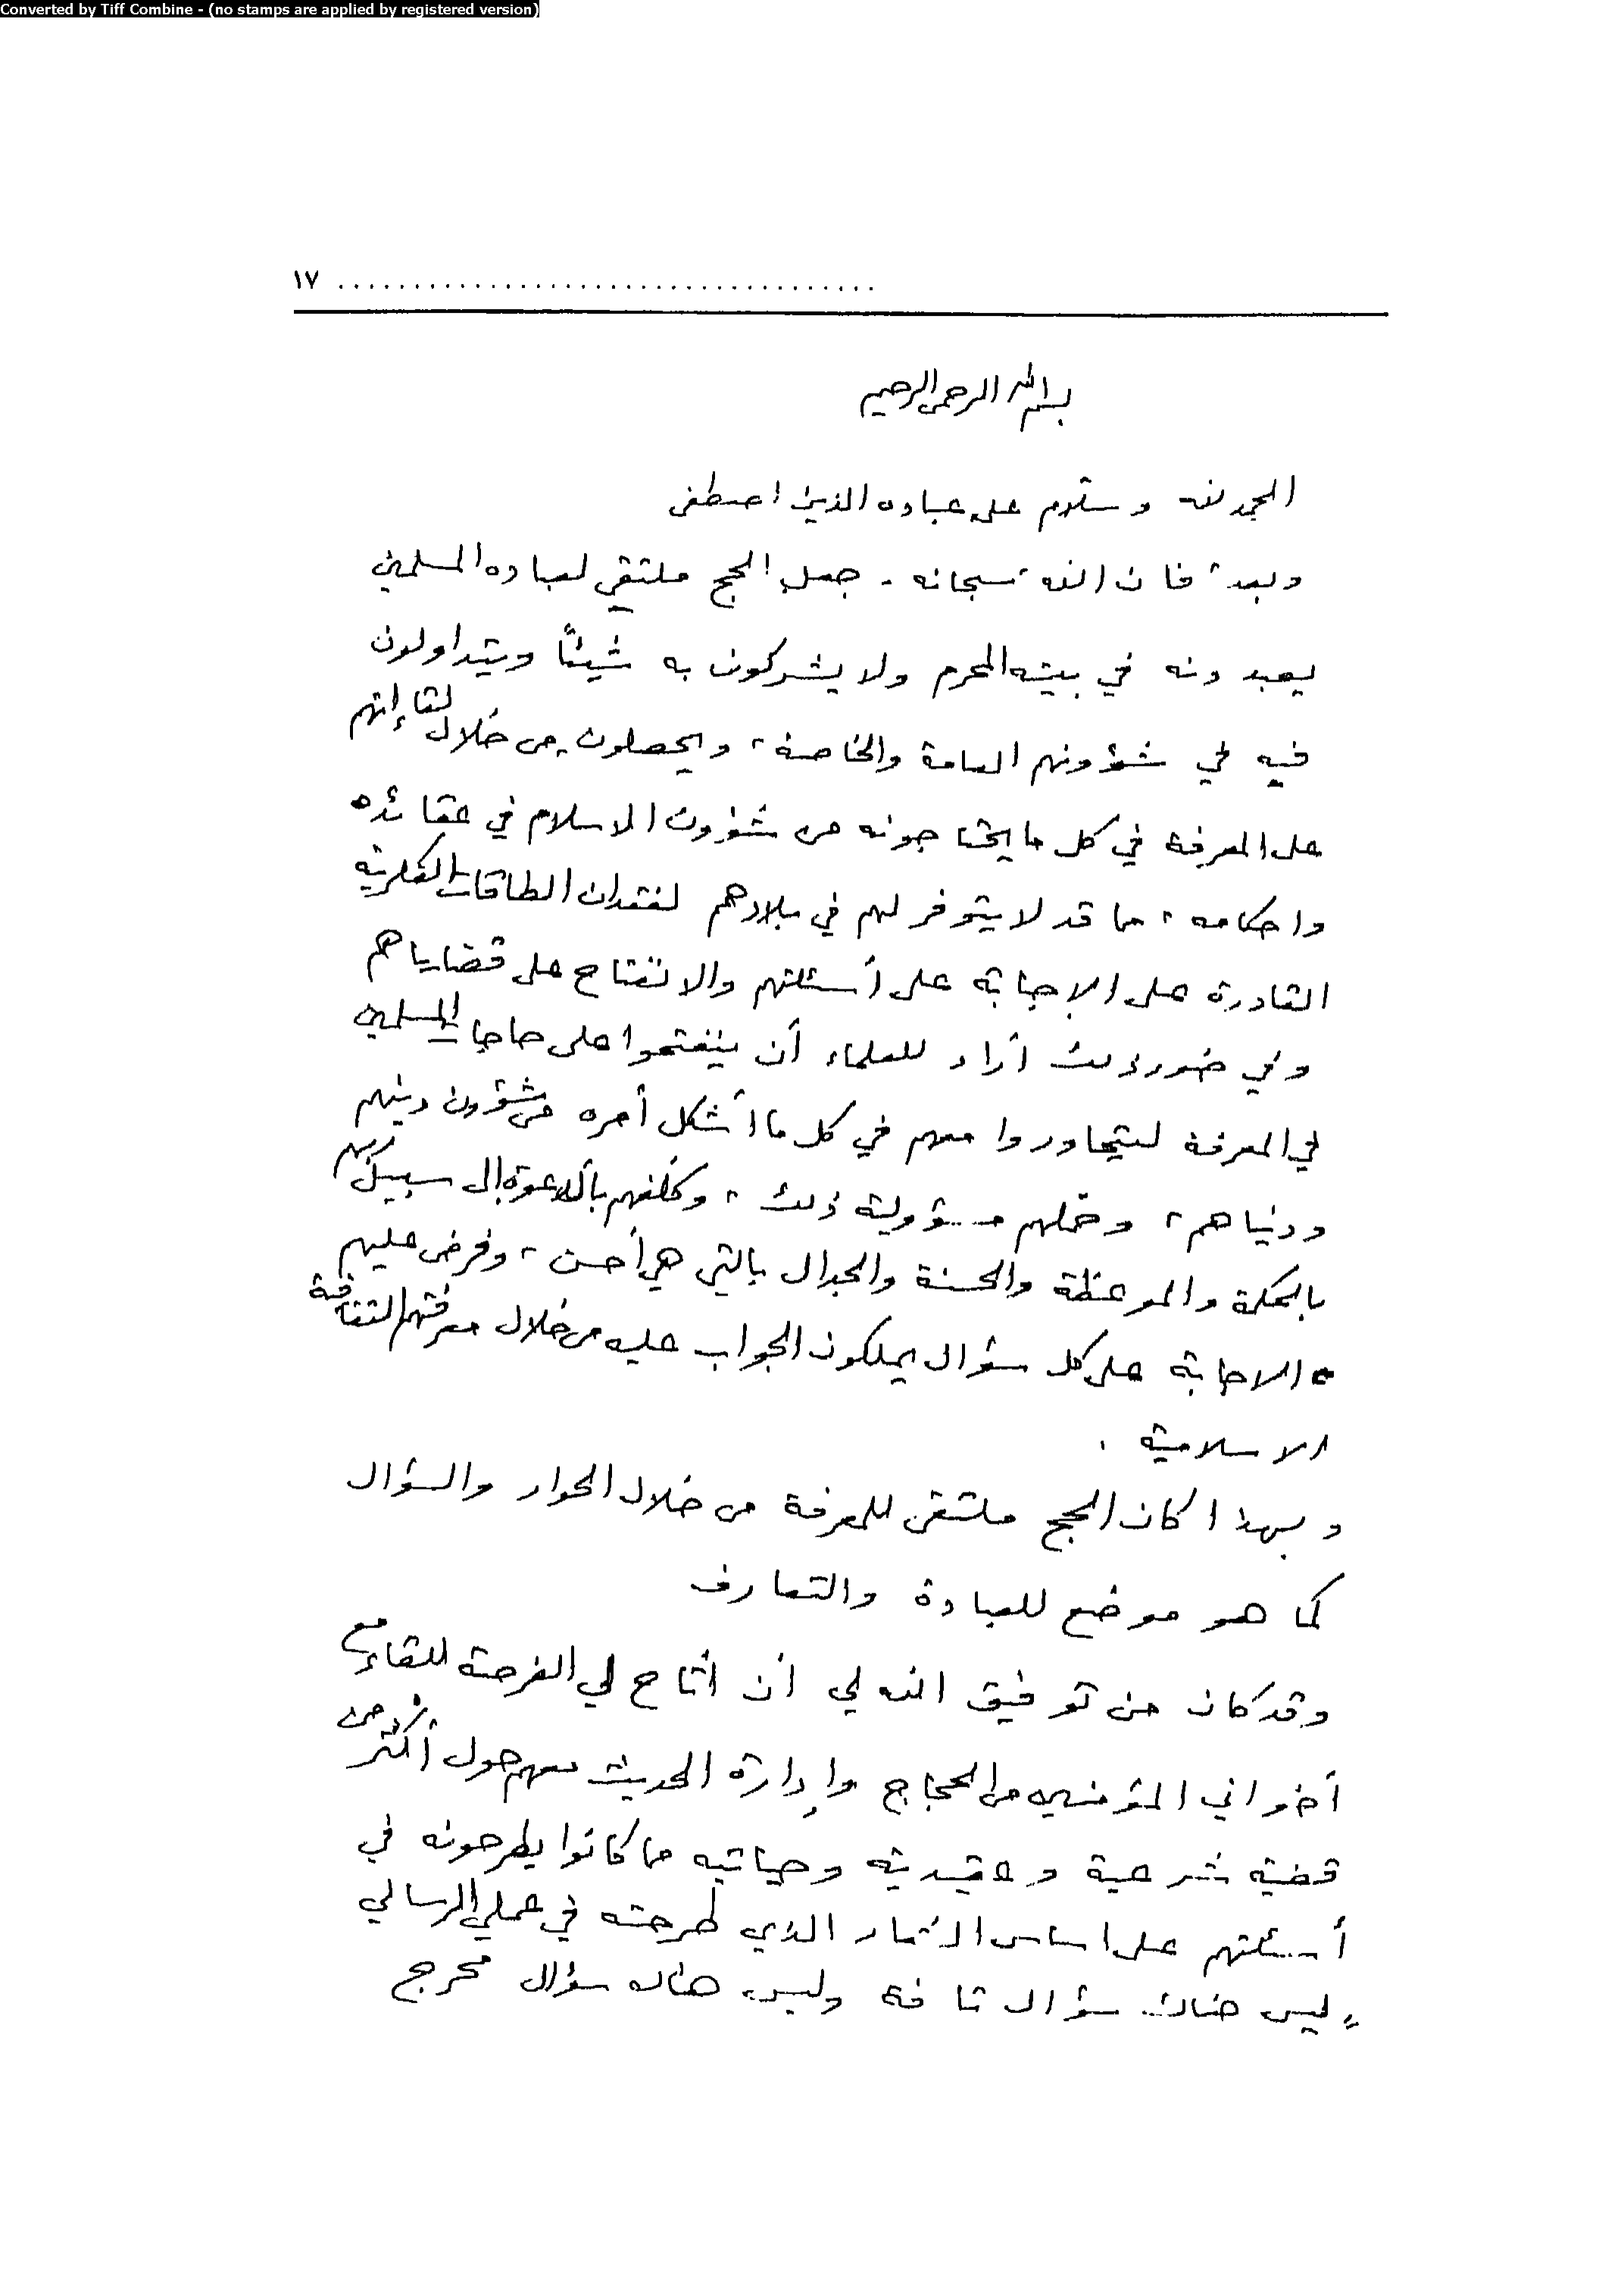 Converted by Tiff Combine - (no stamps are applied by registered version)
١٧ ....................................
بسم الله الرحمن الرحيم
الحمد لله وسلام على عباده الذين اصطفى
وبعد، فان الله سبحانه - جعل الحج ملتقى لعباده المسلمين
يعبدونه في بيته المحرم ولا يشركون به شيئاً ويتداولون
فيه في شؤونهم العامة والخاصة، ويحصلون من خلال لقاءاتهم
على المعرفة في كل ما يحتاجونه من شؤون الاسلام في عقائده
واحكامه، مما قد لا يتوفر لهم في بلادهم لفقدان الطاقات الفكرية
القادرة على الإجابة على أسئلتهم والانفتاح على قضاياهم
وفي ضوء ذلك أراد للعلماء أن ينفتحوا على حاجات المسلمين
في المعرفة ليتحاوروا معهم في كل ما أشكل أمره من شؤون دينهم
ودنياهم، وحمّلهم مسؤولية ذلك، وكلفهم بالدعوة إلى سبيل ربهم
بالحكمة والموعظة والحسنة والجدال بالتي هي أحسن، وفرض عليهم
الاجابة على كل سؤال يملكون الجواب عليه من خلال معرفتهم الثقافة
الاسلامية.
وبهذا كان الحج ملتقى للمعرفة من خلال الحوار والسؤال
كما هو موضع للعبادة والتعارف
وقد كان من توفيق الله لي أن أتاح لي الفرصة للقاء مع
أخواني المؤمنين من الحجاج وإدارة الحديث معهم حول أكثر من
قضية شرعية وعقيدية وحياتيه مما كانوا يطرحونه في
أسئلتهم على اساس الشعار الذي طرحته في عملي الرسالي
"ليس هناك سؤال تافه وليس هناك سؤال محرج